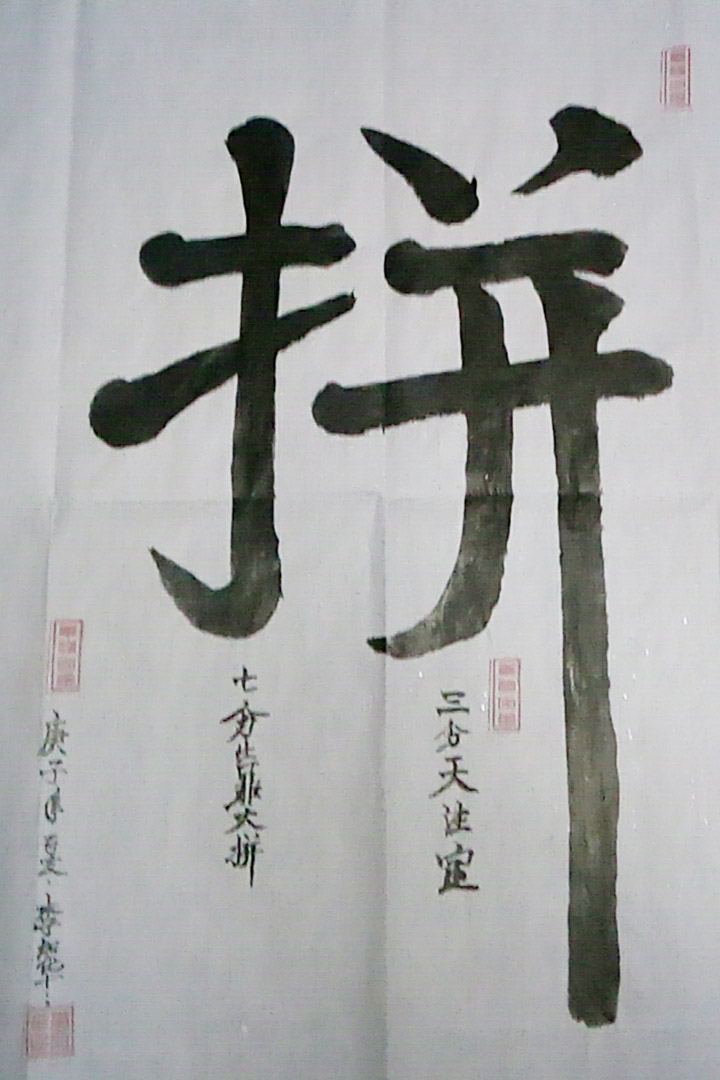 拼
三分天注定
七分靠大拼
庚子年夏